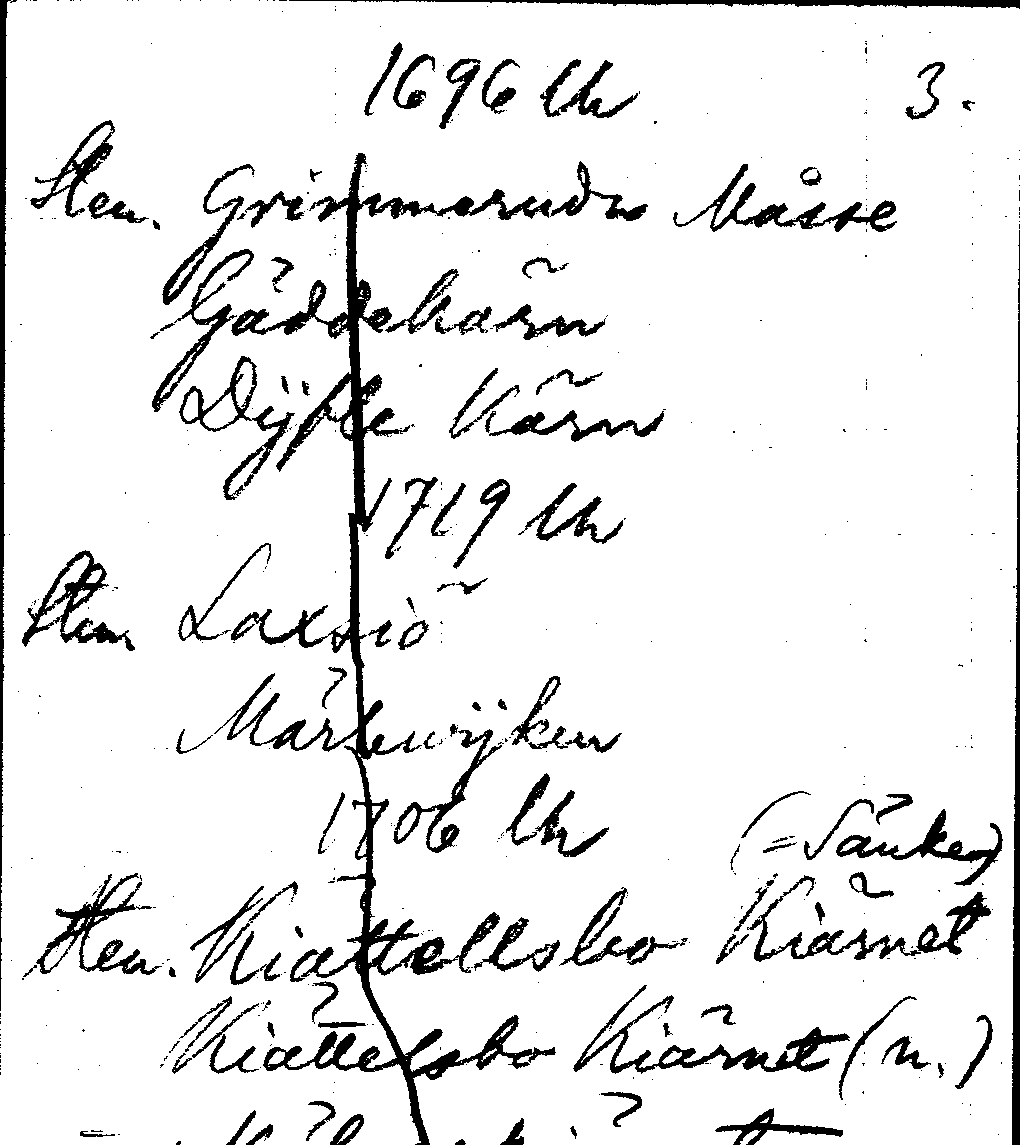 1696 Uh 3.
Sten. Grimmerudz Måsse
Gäddekärn
Dÿfle Kärn
1719 Uh
Sten. Laxsiö
Märkwÿken
1706 Uh
(=Sänken)
Sten. Kiättellsbo Kiärnet
Kiättelsbo Kiärnet (n.)